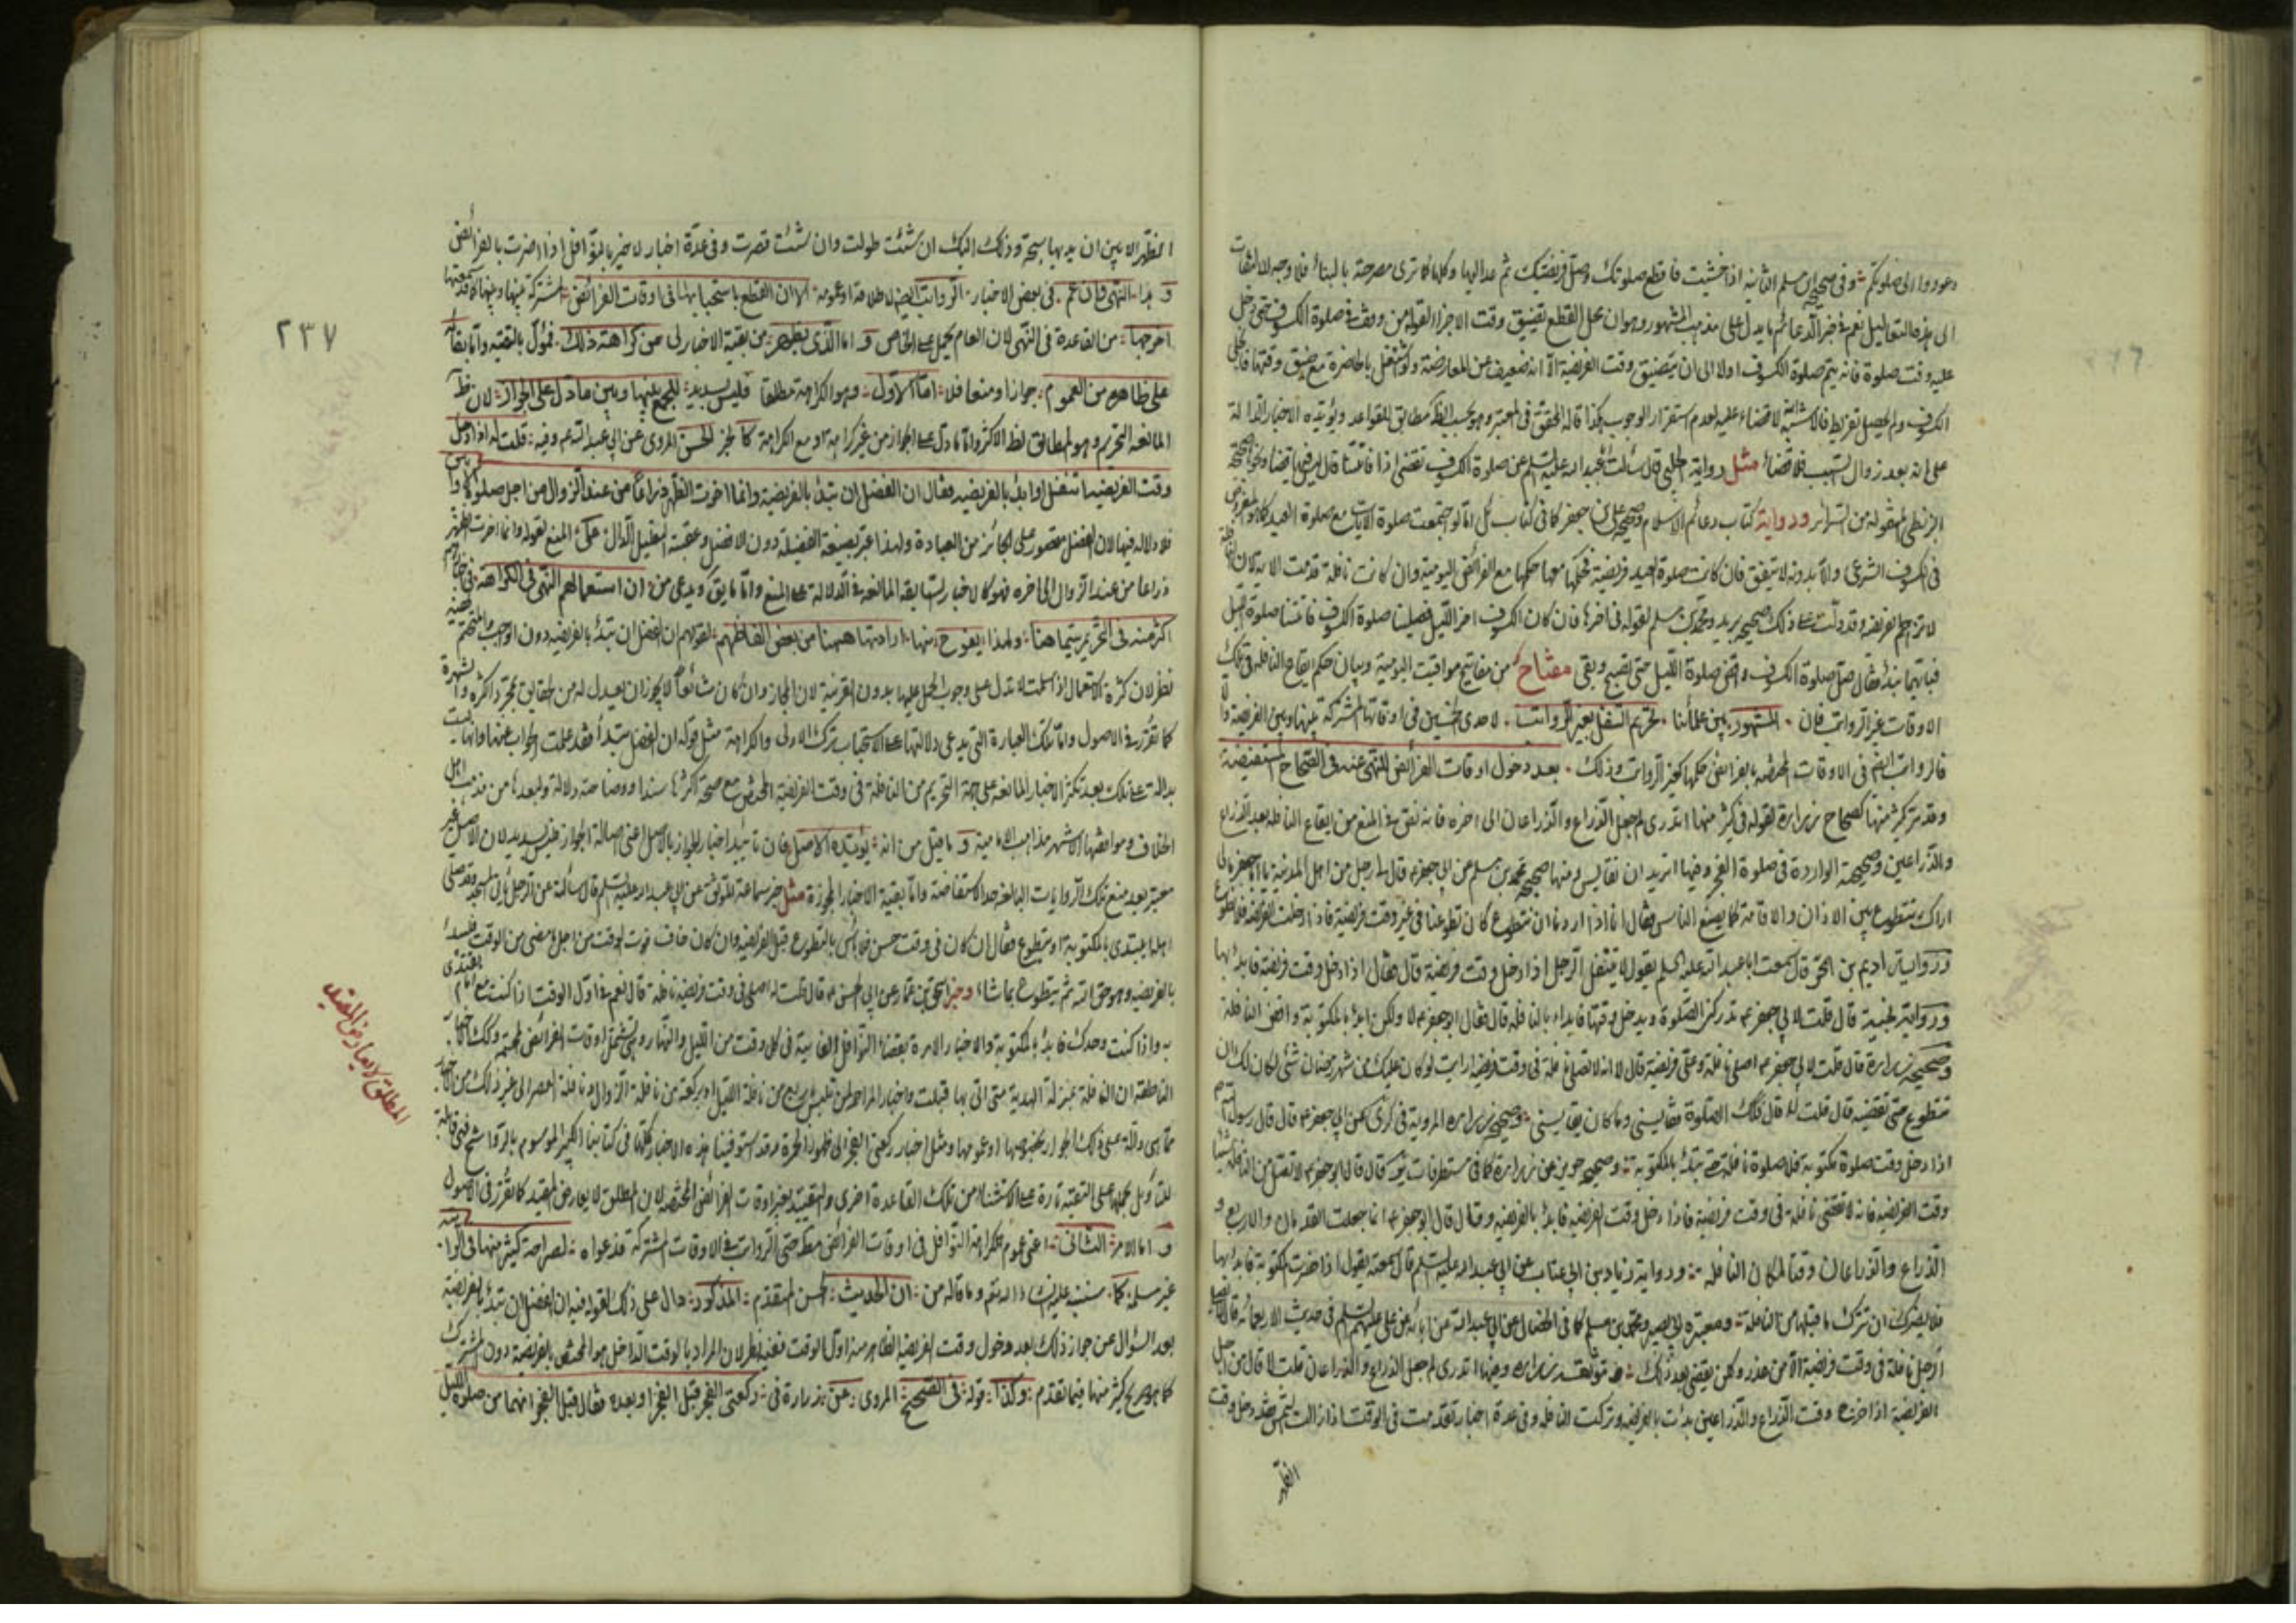 وعودوا الى صلوتكم وفى صحيح ابن مسلم الثانية اذا خشيت فاقطع صلوتك وصل فريضتك ثم عد اليها وكلها كما ترى مصرحة بالبناء فلا وجه لالتفات
الى هذه التعاليل نعم فى خبر الدعائم ما يدل على مذهب المشهور وهو ان محل القطع تضيق وقت الاجزاء لقوله من وقف فى صلوة الكسوف حتى دخل
عليه وقت صلوة فانه يتم صلوة الكسوف اولا الى ان يتضيق وقت الفريضة الا انه ضعيف عن المعارضة ولو اشتغل بالحاضرة مع ضيق وقتها فانجلى
الكسوف ولم يحصل تفريط فالاشبه لا قضاء عليه لعدم استقرار الوجوب هكذا قاله المحقق فى المعتبر وهو بحسب الظ مطابق للقواعد ويؤيده الاخبار الدالة
على انه بعد زوال السبب فلا قضاء مثل رواية الحلبى قال سئلت ابا عبد الله عليه السلم عن صلوة الكسوف تقضى اذا فاتتنا قال ليس فيها قضاء
البزنطى المنقوله من السرائر ورواية كتاب دعائم الاسلام وصحيح على بن جعفر كما فى كتاب اما لو اجتمعت صلوة الايات مع صلوة العيد
فى الكسوف الشرعى والا بدونه لا يتفق فان كانت صلوة العيد فريضة فحكمها معها حكمها مع الفرائض اليومية وان كانت نافلة قدمت الاية لان النافلة
لا تزاحم الفريضة وقد دلت على ذلك صحيح بريد ومحمد بن مسلم لقوله فى اخرها فان كان الكسوف اخر الليل فصلينا صلوة الكسوف فاتتنا صلوة الليل
فبايتهما نبدأ فقال صل صلوة الكسوف واقض صلوة الليل حين تصبح وبقى مفتاح من مفاتيح مواقيت اليومية وبيان حكم ايقاع النافلة فى تلك
الاوقات غير الرواتب فان المشهور بين علمائنا تحريم التنفل بغير الرواتب لاحدى الخمسين فى اوقاتها المشتركة بينها وبين الفريضة والا
فالرواتب ايضا فى الاوقات المختصة بالفرائض حكمها كغير الرواتب وذلك بعد دخول اوقات الفرائض للنهى عنه فى الصحاح المستفيضة
وقد مر كثير منها كصحاح زرارة لقوله فى كثير منها اتدرى لم جعل الذراع والذراعان الى اخره فانه نص فى المنع من ايقاع النافلة بعد الذراع
والذراعين وصحيحته الواردة فى صلوة الفجر وفيها اتريد ان تقايس ومنها صحيح محمد بن مسلم عن ابى جعفر قال قال لى رجل من اهل المدينة يا ابا جعفر مالى
اراك تتطوع بين الاذان والاقامة كما يصنع الناس فقال انا اذا اردنا ان نتطوع كان تطوعنا فى غير وقت فريضة فاذا دخلت الفريضة فلا تطوع
ورواية اديم بن الحر قال سمعت ابا عبد الله عليه السلم يقول لا يتنفل الرجل اذا دخل وقت فريضة قال فقال اذا دخل وقت فريضة فابدأ بها
ورواية نجية قال قلت لابى جعفر تدركنى الصلوة ويدخل وقتها فابدأ بالنافلة قال فقال ابو جعفر لا ولكن ابدأ بالمكتوبة واقض النافلة
وصحيح زرارة قال قلت لابى جعفر اصلى نافلة وعلى فريضة قال لا انه لا تصلى نافلة فى وقت فريضة ارايت لو كان عليك من شهر رمضان شئ اكان لك ان
تتطوع حتى تقضيه قال قلت لا قال فكذلك الصلوة فقايسنى وما كان يقايسنى وصحيح زرارة المروية فى ذكرى عن ابى جعفر قال قال رسول الله
اذا دخل وقت صلوة مكتوبة فلا صلوة نافلة حتى تبتدأ بالمكتوبة وصحيح حريز عن زرارة كما فى مستطرفات قال قال ابو جعفر لا تصل من النافلة شيئا
وقت الفريضة فانه لا تقضى نافلة فى وقت فريضة فاذا دخل وقت الفريضة فابدأ بالفريضة وقال قال ابو جعفر انما جعلت القدمان والاربع و
الذراع والذراعان وقتا لمكان النافلة ورواية زياد بن ابى عتاب عن ابى عبد الله عليه السلم قال سمعته يقول اذا حضرت المكتوبة فابدأ بها
فلا يضرك ان تترك ما قبلها من النافلة ومعتبرة ابى بصير ومحمد بن مسلم كما فى الخصال عن ابى عبد الله عن ابائه عن على عليهم السلم فى حديث الاربعمائة قال
الرجل نافلة فى وقت فريضة الا من عذر ولكن يقضى بعد ذلك موثقة زرارة وفيها اتدرى لم جعل الذراع والذراعان قلت لا قال من اجل
الفريضة اذا دخل وقت الذراع والذراعين بدأت بالفريضة وتركت النافلة وفى عدة اخبار تقدمت فى الوقت اذا زالت الشمس فقد دخل وقت
الظهر
٢٣٧
الظهر الا بين ان يديها سبحة وذلك اليك ان شئت طولت وان شئت قصرت وفى عدة اخبار لا خير بالنوافل اذا اضرت بالفرائض
و هذا النهى وان عم فى بعض الاخبار الرواتب ايضا لاطلاقه او عمومه الا ان القطع باستحبابها فى اوقات الفرائض المشتركة بينها وبينها
اخرجها من القاعدة فى النهى لان العام يحمل على الخاص و اما الذى يظهر من بقية الاخبار لى من كراهة ذلك فمؤل بالتقية واما بقائه
على ظاهره من العموم جوازا ومنعا فلا اما الاول وهو الكراهة مطلقا فليس بسديد للجمع بينها وبين ما دل على الجواز لان ظ
المانعه التحريم وهو المطابق لظ الاكثر واما ما دل على الجواز من غير كراهة او مع الكراهة كما لخبر الحسن المروى عن ابى عبد الله وفيه قلت له اذا دخل
وقت الفريضة اتنفل او ابدأ بالفريضه فقال ان الفضل ان تبدأ بالفريضة وانما اخرت الظهر ذراعا من عند الزوال من اجل صلوة الاوابين
فلا دلاله فيها لان الفضل مقصور على الجائز من العبادة ولهذا عبر بصيغة الفضيلة دون الافضل وعقبه التعليل الدال على المنع لقوله وانما اخرت الظهر
ذراعا من عند الزوال الى اخره فهو كالاخبار السابقة المانعة فى الدلالة على المنع واما ما يق ويدعى من ان استعمالهم النهى فى الكراهة فى
اكثر منه فى التحريم سيما هنا ولهذا يفوح منها ارادتها ههنا من بعض الفاظهم لقولهم ان الفضل ان تبدأ بالفريضة دون الوجوب والتحتم
نظر لان كثرة الاستعمال اذا سلمت لا تدل على وجوب الحمل عليها بدون القرينة لان المجاز وان كان شائعا لا يجوز ان يعدل له من الحقايق بمجرد الكثرة والشهرة
كما تقرر فى الاصول واما تلك العبارة التى يدعى دلالتها على الاستحباب ترك الاولى والكراهة مثل قوله ان الفضل تبدأ فقد علمت الجواب عنها وانها ليست
بدالة على ذلك بعد تكثر الاخبار المانعه على جهة التحريم من النافلة فى وقت الفريضة المختص مع صحة اكثرها سندا ووضاحته دلالة ولبعدها من مذهب اهل
الخلاف وموافقتها لاشهر مذاهب الامامية و ما قيل من انه يؤيده الاصل فان تأييد اخبار الجواز بالاصل اعنى اصالة الجواز فليس بسديد لان الاصل غير
معتبر بعد منع تلك الروايات البالغة حد الاستفاضة واما بقية الاخبار المجوزة مثل خبر سماعة الموثق عن ابى عبد الله عليه السلم قال سألته عن الرجل يأتى المسجد وقد صلى
اهله ايبتدى بالمكتوبة او يتطوع فقال ان كان فى وقت حسن فلا بأس بالتطوع قبل الفريضة وان كان خاف فوت الوقت من اجل ما مضى من الوقت فليبدأ
بالفريضة وهو حق الله ثم يتطوع بما شاء وخبر اسحق بن عمار عن ابى الحسن قال قلت له اصلى فى وقت فريضة نافلة قال نعم فى اول الوقت اذا كنت مع امام تقتدى
به واذا كنت وحدك فابدأ بالمكتوبة والاخبار الامرة بقضاء النوافل الفايتة فى كل وقت من الليل والنهار وتشتمل اوقات الفرائض المختصة وكذلك اخبار
الناطقة ان النافلة بمنزلة الهدية متى اتى بها قبلت واخبار المزاحم لمن تلبس باربع من نافلة الليل او بركعة من نافلة الزوال ونافلة العصر الى غير ذلك من الاخبار
مما هى دالة على ذلك الجواز بخصوصها او عمومها ومثل اخبار ركعتى الفجر الى ظهور الحمرة وقد استوفينا هذه الاخبار كلها فى كتابنا الكبير الموسوم بالرواشح فهى قابلة
للتأويل بحملها على التقية تارة على الاستثناء من تلك القاعدة اخرى والتقييد بغير اوقات الفرائض المختصة لان المطلق لا يعارض المقيد كما تقرر فى الاصول
و اما الامر الثانى اعنى عموم الكراهة النوافل فى اوقات الفرائض مط حتى الرواتب فى الاوقات المشتركة فدعواه لصراحة كثير منها فى
غير مسلم كما سنبينه عليه انشاء الله تعالى وما قاله من ان الحديث الحسن المتقدم المذكور دال على ذلك لقوله فيه ان الفضل ان تبدأ بالفريضة
بعد السؤال عن جواز ذلك بعد دخول وقت الفريضة الظاهر منه اول الوقت ففيه نظر لان المراد بالوقت الداخل هو المختص بالفريضة دون المشترك
كما هو صريح كثير منها فيما تقدم وكذا قوله فى الصحيح المروى عن زرارة فى ركعتى الفجر قبل الفجر او بعده فقال قبل الفجر انهما من صلوة الليل
المطلق لا يعارض المقيد